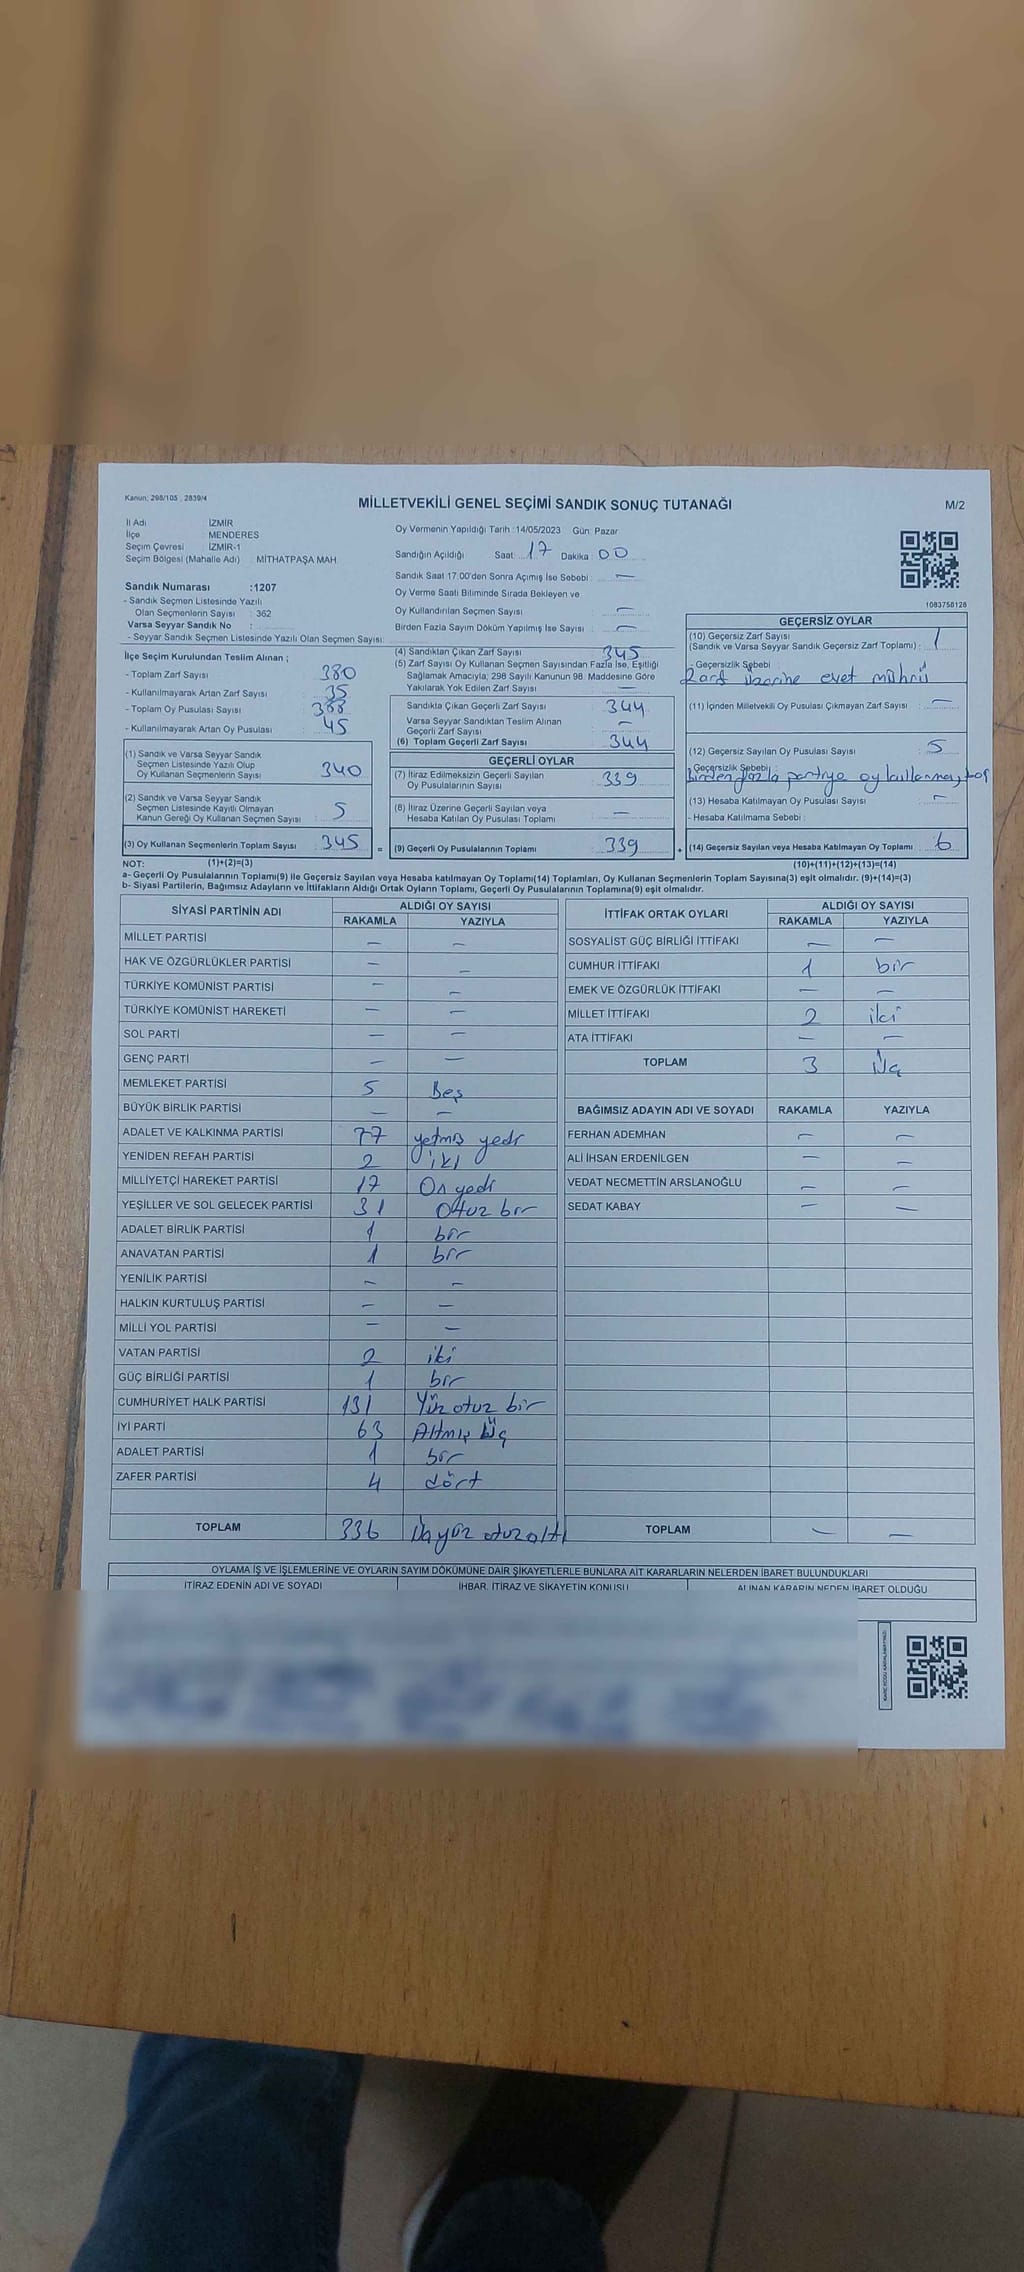 Kanun; 298/105 , 2839/4
MİLLETVEKİLİ GENEL SEÇİMİ SANDIK SONUÇ TUTANAĞI
M/2
İl Adı İZMİR
İlçe MENDERES
Seçim Çevresi İZMİR-1
Seçim Bölgesi (Mahalle Adı) MİTHATPAŞA MAH
Sandık Numarası :1207
- Sandık Seçmen Listesinde Yazılı
Olan Seçmenlerin Sayısı : 362
Varsa Seyyar Sandık No :
- Seyyar Sandık Seçmen Listesinde Yazılı Olan Seçmen Sayısı:
Oy Vermenin Yapıldığı Tarih :14/05/2023 Gün: Pazar
Sandığın Açıldığı Saat: 17 Dakika: 00
Sandık Saat 17:00'den Sonra Açımış İse Sebebi : —
Oy Verme Saati Bitiminde Sırada Bekleyen ve
Oy Kullandırılan Seçmen Sayısı : —
Birden Fazla Sayım Döküm Yapılmış İse Sayısı : —
1083758128
İlçe Seçim Kurulundan Teslim Alınan ;
- Toplam Zarf Sayısı : 380
- Kullanılmayarak Artan Zarf Sayısı : 35
- Toplam Oy Pusulası Sayısı :
- Kullanılmayarak Artan Oy Pusulası : 45
(1) Sandık ve Varsa Seyyar Sandık
Seçmen Listesinde Yazılı Olup
Oy Kullanan Seçmenlerin Sayısı : 340
(2) Sandık ve Varsa Seyyar Sandık
Seçmen Listesinde Kayıtlı Olmayan
Kanun Gereği Oy Kullanan Seçmen Sayısı : 5
(3) Oy Kullanan Seçmenlerin Toplam Sayısı : 345
(4) Sandıktan Çıkan Zarf Sayısı : 345
(5) Zarf Sayısı Oy Kullanan Seçmen Sayısından Fazla İse, Eşitliği
Sağlamak Amacıyla; 298 Sayılı Kanunun 98. Maddesine Göre
Yakılarak Yok Edilen Zarf Sayısı : —
Sandıkta Çıkan Geçerli Zarf Sayısı : 344
Varsa Seyyar Sandıktan Teslim Alınan
Geçerli Zarf Sayısı : —
(6) Toplam Geçerli Zarf Sayısı : 344
GEÇERLİ OYLAR
(7) İtiraz Edilmeksizin Geçerli Sayılan
Oy Pusulalarının Sayısı : 339
(8) İtiraz Üzerine Geçerli Sayılan veya
Hesaba Katılan Oy Pusulası Toplamı : —
= (9) Geçerli Oy Pusulalarının Toplamı : 339
GEÇERSİZ OYLAR
(10) Geçersiz Zarf Sayısı
(Sandık ve Varsa Seyyar Sandık Geçersiz Zarf Toplamı) : 1
- Geçersizlik Sebebi :
Zarf üzerine evet mührü
(11) İçinden Milletvekili Oy Pusulası Çıkmayan Zarf Sayısı : —
(12) Geçersiz Sayılan Oy Pusulası Sayısı : 5
- Geçersizlik Sebebi :
birden fazla partiye oy kullanma,
(13) Hesaba Katılmayan Oy Pusulası Sayısı : —
- Hesaba Katılmama Sebebi :
+ (14) Geçersiz Sayılan veya Hesaba Katılmayan Oy Toplamı : 6
NOT: (1)+(2)=(3) (10)+(11)+(12)+(13)=(14)
a- Geçerli Oy Pusulalarının Toplamı(9) ile Geçersiz Sayılan veya Hesaba katılmayan Oy Toplamı(14) Toplamları, Oy Kullanan Seçmenlerin Toplam Sayısına(3) eşit olmalıdır. (9)+(14)=(3)
b- Siyasi Partilerin, Bağımsız Adayların ve İttifakların Aldığı Ortak Oyların Toplamı, Geçerli Oy Pusulalarının Toplamına(9) eşit olmalıdır.
SİYASİ PARTİNİN ADI ALDIĞI OY SAYISI
RAKAMLA YAZIYLA
MİLLET PARTİSİ — —
HAK VE ÖZGÜRLÜKLER PARTİSİ — —
TÜRKİYE KOMÜNİST PARTİSİ — —
TÜRKİYE KOMÜNİST HAREKETİ — —
SOL PARTİ — —
GENÇ PARTİ — —
MEMLEKET PARTİSİ 5 Beş
BÜYÜK BİRLİK PARTİSİ — —
ADALET VE KALKINMA PARTİSİ 77 yetmiş yedi
YENİDEN REFAH PARTİSİ 2 iki
MİLLİYETÇİ HAREKET PARTİSİ 17 On yedi
YEŞİLLER VE SOL GELECEK PARTİSİ 31 Otuz bir
ADALET BİRLİK PARTİSİ 1 bir
ANAVATAN PARTİSİ 1 bir
YENİLİK PARTİSİ — —
HALKIN KURTULUŞ PARTİSİ — —
MİLLİ YOL PARTİSİ — —
VATAN PARTİSİ 2 iki
GÜÇ BİRLİĞİ PARTİSİ 1 bir
CUMHURİYET HALK PARTİSİ 131 Yüz otuz bir
İYİ PARTİ 63 Altmış üç
ADALET PARTİSİ 1 bir
ZAFER PARTİSİ 4 dört
TOPLAM 336 Üçyüz otuzaltı
İTTİFAK ORTAK OYLARI ALDIĞI OY SAYISI
RAKAMLA YAZIYLA
SOSYALİST GÜÇ BİRLİĞİ İTTİFAKI — —
CUMHUR İTTİFAKI 1 bir
EMEK VE ÖZGÜRLÜK İTTİFAKI — —
MİLLET İTTİFAKI 2 iki
ATA İTTİFAKI — —
TOPLAM 3 üç
BAĞIMSIZ ADAYIN ADI VE SOYADI RAKAMLA YAZIYLA
FERHAN ADEMHAN — —
ALİ İHSAN ERDENİLGEN — —
VEDAT NECMETTİN ARSLANOĞLU — —
SEDAT KABAY — —
TOPLAM — —
OYLAMA İŞ VE İŞLEMLERİNE VE OYLARIN SAYIM DÖKÜMÜNE DAİR ŞİKAYETLERLE BUNLARA AİT KARARLARIN NELERDEN İBARET BULUNDUKLARI
İTİRAZ EDENİN ADI VE SOYADI İHBAR, İTİRAZ VE ŞİKAYETİN KONUSU ALINAN KARARIN NEDEN İBARET OLDUĞU